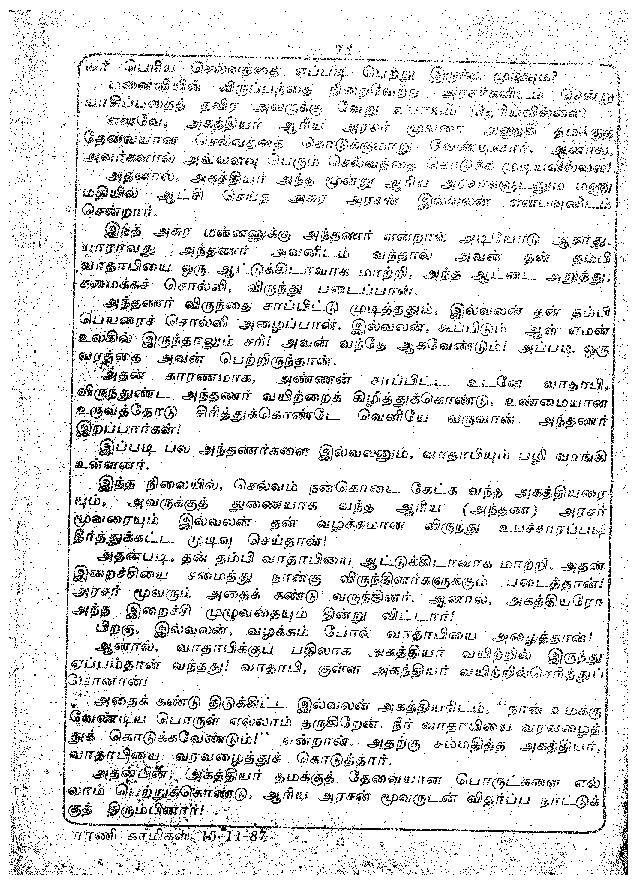 71
பெரிய செல்வத்தை எப்படி பெற்று இருக்க முடியும்?
மனைவியின் விருப்பத்தை நிறைவேற்ற அரசர்களிடம் சென்று
யாசிப்பதைத் தவிர அவருக்கு வேறு உபாயம் தெரியவில்லை!
எனவே, அகத்தியர் ஆரிய அரசர் மூவரை அணுகி தமக்குத்
தேவையான செல்வத்தை கொடுக்குமாறு வேண்டினார். ஆனால்,
அவர்களால் அவ்வளவு பெரும் செல்வத்தை கொடுக்க முடியவில்லை!
அதனால், அகத்தியர் அந்த மூன்று ஆரிய அரசர்களுடனும் மணி
மதியில் ஆட்சி செய்த அசுர அரசன் இல்வலன் என்பவனிடம்
சென்றார்.
இந்த அசுர மன்னனுக்கு அந்தணர் என்றால் அடியோடு ஆகாது.
யாராவது அந்தணர் அவனிடம் வந்தால் அவன் தன் தம்பி
வாதாபியை ஒரு ஆட்டுக்கிடாவாக மாற்றி, அந்த ஆட்டை அறுத்து,
சமைக்கச் சொல்லி, விருந்து படைப்பான்.
அந்தணர் விருந்தை சாப்பிட்டு முடித்ததும், இல்வலன் தன் தம்பி
பெயரைச் சொல்லி அழைப்பான். இல்வலன், கூப்பிடும் ஆள் எமன்
உலகில் இருந்தாலும் சரி! அவன் வந்தே ஆகவேண்டும்! அப்படி ஒரு
வரத்தை அவன் பெற்றிருந்தான்.
அதன் காரணமாக, அண்ணன் சாப்பிட்ட உடனே வாதாபி,
விருந்துண்ட அந்தணர் வயிற்றைக் கிழித்துக்கொண்டு, உண்மையான
உருவத்தோடு சிரித்துக்கொண்டே வெளியே வருவான். அந்தணர்
இறப்பார்கள்!
இப்படி பல அந்தணர்களை இல்வலனும், வாதாபியும் பழி வாங்கி
உள்ளனர்.
இந்த நிலையில், செல்வம் நன்கொடை கேட்க வந்த அகத்தியரை
யும், அவருக்குத் துணையாக வந்த ஆரிய (அந்தண) அரசர்
மூவரையும் இல்வலன் தன் வழக்கமான விருந்து உபச்சாரப்படி
தீர்த்துக்கட்ட முடிவு செய்தான்!
அதன்படி, தன் தம்பி வாதாபியை ஆட்டுக்கிடாவாக மாற்றி, அதன்
இறைச்சியை சமைத்து நான்கு விருந்தினர்களுக்கும் படைத்தான்!
அரசர் மூவரும் அதைக் கண்டு வருந்தினர். ஆனால், அகத்தியரோ
அந்த இறைச்சி முழுவதையும் தின்று விட்டார்!
பிறகு, இல்வலன், வழக்கம் போல் வாதாபியை அழைத்தான்!
ஆனால், வாதாபிக்குப் பதிலாக அகத்தியர் வயிற்றில் இருந்து
ஏப்பம்தான் வந்தது! வாதாபி, குள்ள அகத்தியர் வயிற்றில்செரித்துப்
போனான்!
அதைக் கண்டு திடுக்கிட்ட இல்வலன் அகத்தியரிடம், "நான் உமக்கு
வேண்டிய பொருள் எல்லாம் தருகிறேன். நீர் வாதாபியை வரவழைத்
துக் கொடுக்கவேண்டும்!" என்றான். அதற்கு சம்மதித்த அகத்தியர்,
வாதாபியை வரவழைத்துக் கொடுத்தார்.
அதன்பின், அகத்தியர் தமக்குத் தேவையான பொருட்களை எல்
லாம் பெற்றுக்கொண்டு, ஆரிய அரசன் மூவருடன் விதர்ப்ப நாட்டுக்
குத் திரும்பினார்!
ராணி காமிக்ஸ் 15-11-87